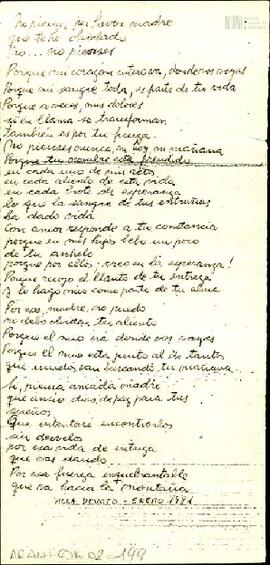 No pienses, por favor madre
que te he olvidado
No... no pienses
Porque mi corazón entero va, donde vos vayas
Porque mi sangre toda, es parte de tu vida
Porque a veces, mis dolores
si en llama se transforman
también es por tu fuerza.
No pienses nunca, ni hoy ni mañana
Porque tu nombre está prendido
en cada uno de mis actos
en cada aliento de esta vida
en cada brote de esperanza
lo que la sangre de tus entrañas
ha dado vida
Con amor respondo a tu constancia
porque en mis hijos bebo un poco
de tu anhelo
porque por ellos, creo en la esperanza!
Porque recojo el llanto de tu entrega
y lo hago mío como parte de tu alma
Por eso, madre, no puedo
no debo olvidar, tu aliento
Porque el mío irá donde vos vayas
Porque el mío está junto al de tantos
que unidos van buscando tu mañana...
Si, piensa amada madre
que ansío días de paz para tus
sueños
Que intentaré encontrarlos
sin desvelo
por esa vida de entrega
que vas dando
Por esa fuerza inquebrantable
que va hacia la montaña
VILLA DEVOTO - ENERO 1981